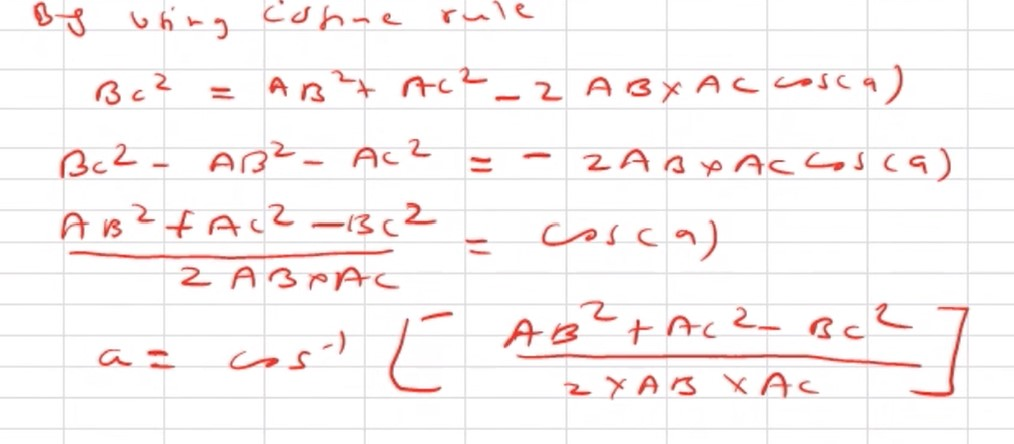 By using cosine rule
BC² = AB² + AC² - 2 AB × AC cos(a)
BC² - AB² - AC² = - 2AB × AC cos(a)
AB² + AC² - BC²
= cos(a)
2 AB × AC
a = cos⁻¹ [ AB² + AC² - BC²
2 × AB × AC ]